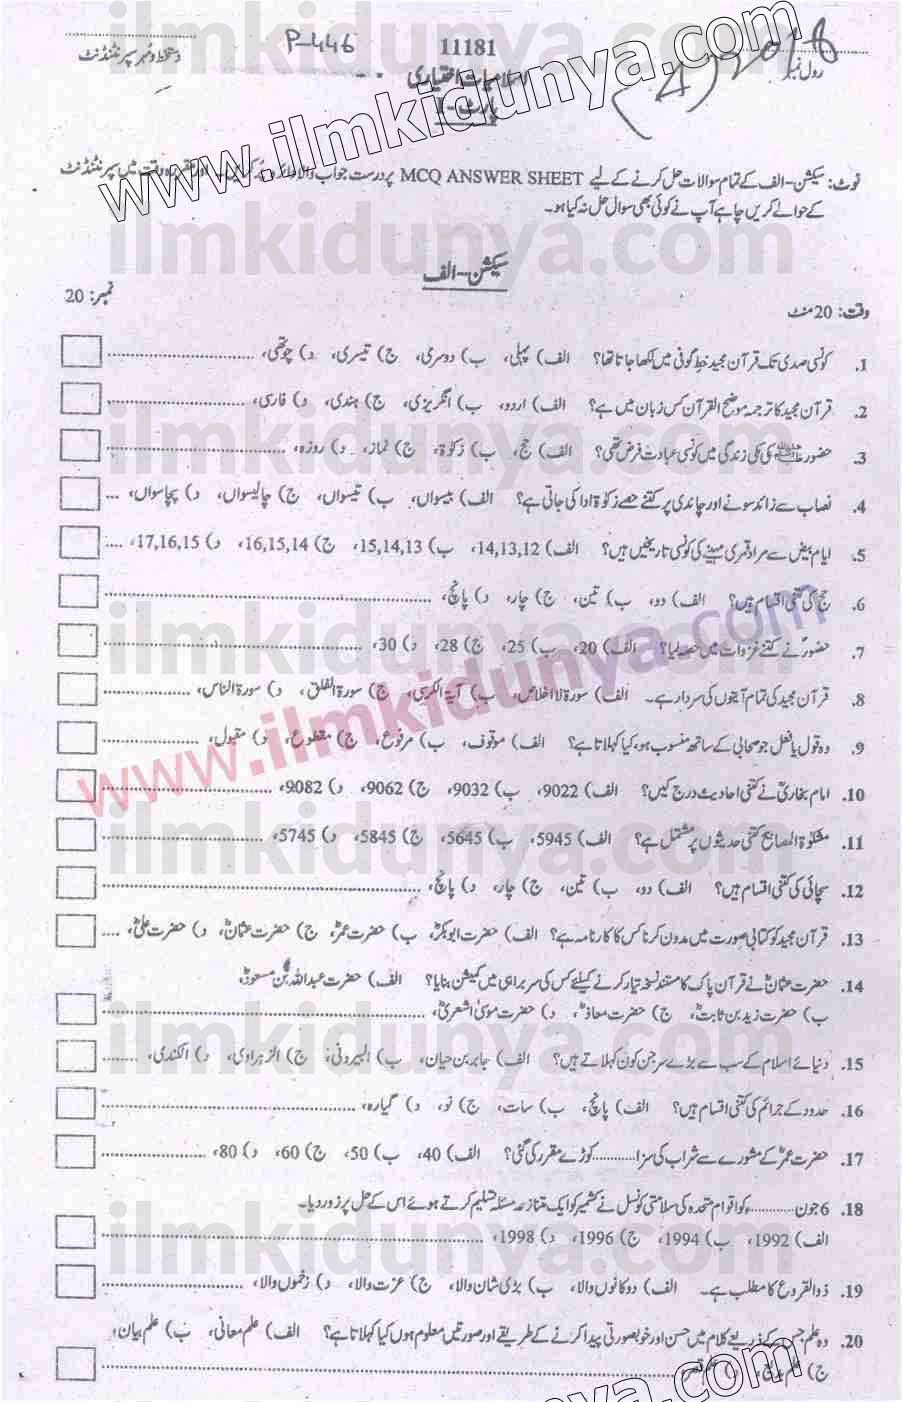 رول نمبر
(4) 2018
11181
P-446
دستخط و مُہر سپرنٹنڈنٹ
اسلامیات اختیاری
پارٹ-I
نوٹ: سیکشن-الف کے تمام سوالات حل کرنے کے لیے MCQ ANSWER SHEET پر درست جواب والا دائرہ پُر کریں۔ اور مقررہ وقت میں سپرنٹنڈنٹ
کے حوالے کریں چاہے آپ نے کوئی بھی سوال حل نہ کیا ہو۔
سیکشن-الف
وقت: 20 منٹ نمبر: 20
1. کونسی صدی تک قرآن مجید خطِ کوفی میں لکھا جاتا تھا؟ الف) پہلی، ب) دوسری، ج) تیسری، د) چوتھی،
2. قرآن مجید کا ترجمہ موضح القرآن کس زبان میں ہے؟ الف) اردو، ب) انگریزی، ج) ہندی، د) فارسی،
3. حضور ﷺ کی مکی زندگی میں کونسی عبادت فرض تھی؟ الف) حج، ب) زکوٰۃ، ج) نماز، د) روزہ،
4. نصاب سے زائد سونے اور چاندی پر کتنے حصے زکوٰۃ ادا کی جاتی ہے؟ الف) بیسواں، ب) تیسواں، ج) چالیسواں، د) پچاسواں،
5. ایام بیض سے مراد قمری مہینے کی کونسی تاریخیں ہیں؟ الف) 14,13,12، ب) 15,14,13، ج) 16,15,14، د) 17,16,15،
6. حج کی کتنی اقسام ہیں؟ الف) دو، ب) تین، ج) چار، د) پانچ،
7. حضورؐ نے کتنے غزوات میں حصہ لیا؟ الف) 20، ب) 25، ج) 28، د) 30،
8. قرآن مجید کی تمام آیتوں کی سردار ہے۔ الف) سورۃ الاخلاص، ب) آیۃ الکرسی، ج) سورۃ الفلق، د) سورۃ الناس،
9. وہ قول یا فعل جو صحابی کے ساتھ منسوب ہو، کیا کہلاتا ہے؟ الف) موقوف، ب) مرفوع، ج) مقطوع، د) مقبول،
10. امام بخاریؒ نے کتنی احادیث درج کیں؟ الف) 9022، ب) 9032، ج) 9062، د) 9082،
11. مشکوٰۃ المصابیح کتنی حدیثوں پر مشتمل ہے؟ الف) 5945، ب) 5645، ج) 5845، د) 5745،
12. سچائی کی کتنی اقسام ہیں؟ الف) دو، ب) تین، ج) چار، د) پانچ،
13. قرآن مجید کو کتابی صورت میں مدون کرنا کس کا کارنامہ ہے؟ الف) حضرت ابوبکرؓ، ب) حضرت عمرؓ، ج) حضرت عثمانؓ، د) حضرت علیؓ،
14. حضرت عثمانؓ نے قرآن پاک کا مستند نسخہ تیار کرنے کیلئے کس کی سربراہی میں کمیشن بنایا؟ الف) حضرت عبداللہ بن مسعودؓ،
ب) حضرت زید بن ثابتؓ، ج) حضرت معاذؓ، د) حضرت موسیٰ اشعریؓ،
15. دنیائے اسلام کے سب سے بڑے سرجن کون کہلاتے ہیں؟ الف) جابر بن حیان، ب) البیرونی، ج) الزہراوی، د) الکندی،
16. حدود کے جرائم کی کتنی اقسام ہیں؟ الف) پانچ، ب) سات، ج) نو، د) گیارہ،
17. حضرت عمرؓ کے مشورے سے شراب کی سزا............کوڑے مقرر کی گئی؟ الف) 40، ب) 50، ج) 60، د) 80،
18. 6 جون............ء کو اقوام متحدہ کی سلامتی کونسل نے کشمیر کو ایک متنازعہ مسئلہ تسلیم کرتے ہوئے اس کے حل پر زور دیا۔
الف) 1992، ب) 1994، ج) 1996، د) 1998،
19. ذوالقروع کا مطلب ہے۔ الف) دو کانوں والا، ب) بڑی شان والا، ج) عزت والا، د) زخموں والا،
20. وہ علم جس کے ذریعے کلام میں حسن اور خوبصورتی پیدا کرنے کے طریقے اور صورتیں معلوم ہوں کیا کہلاتا ہے؟ الف) علم معانی، ب) علم بیان،
ج) علم د) علم
www.ilmkidunya.com
www.ilmkidunya.com
ilmkidunya.com